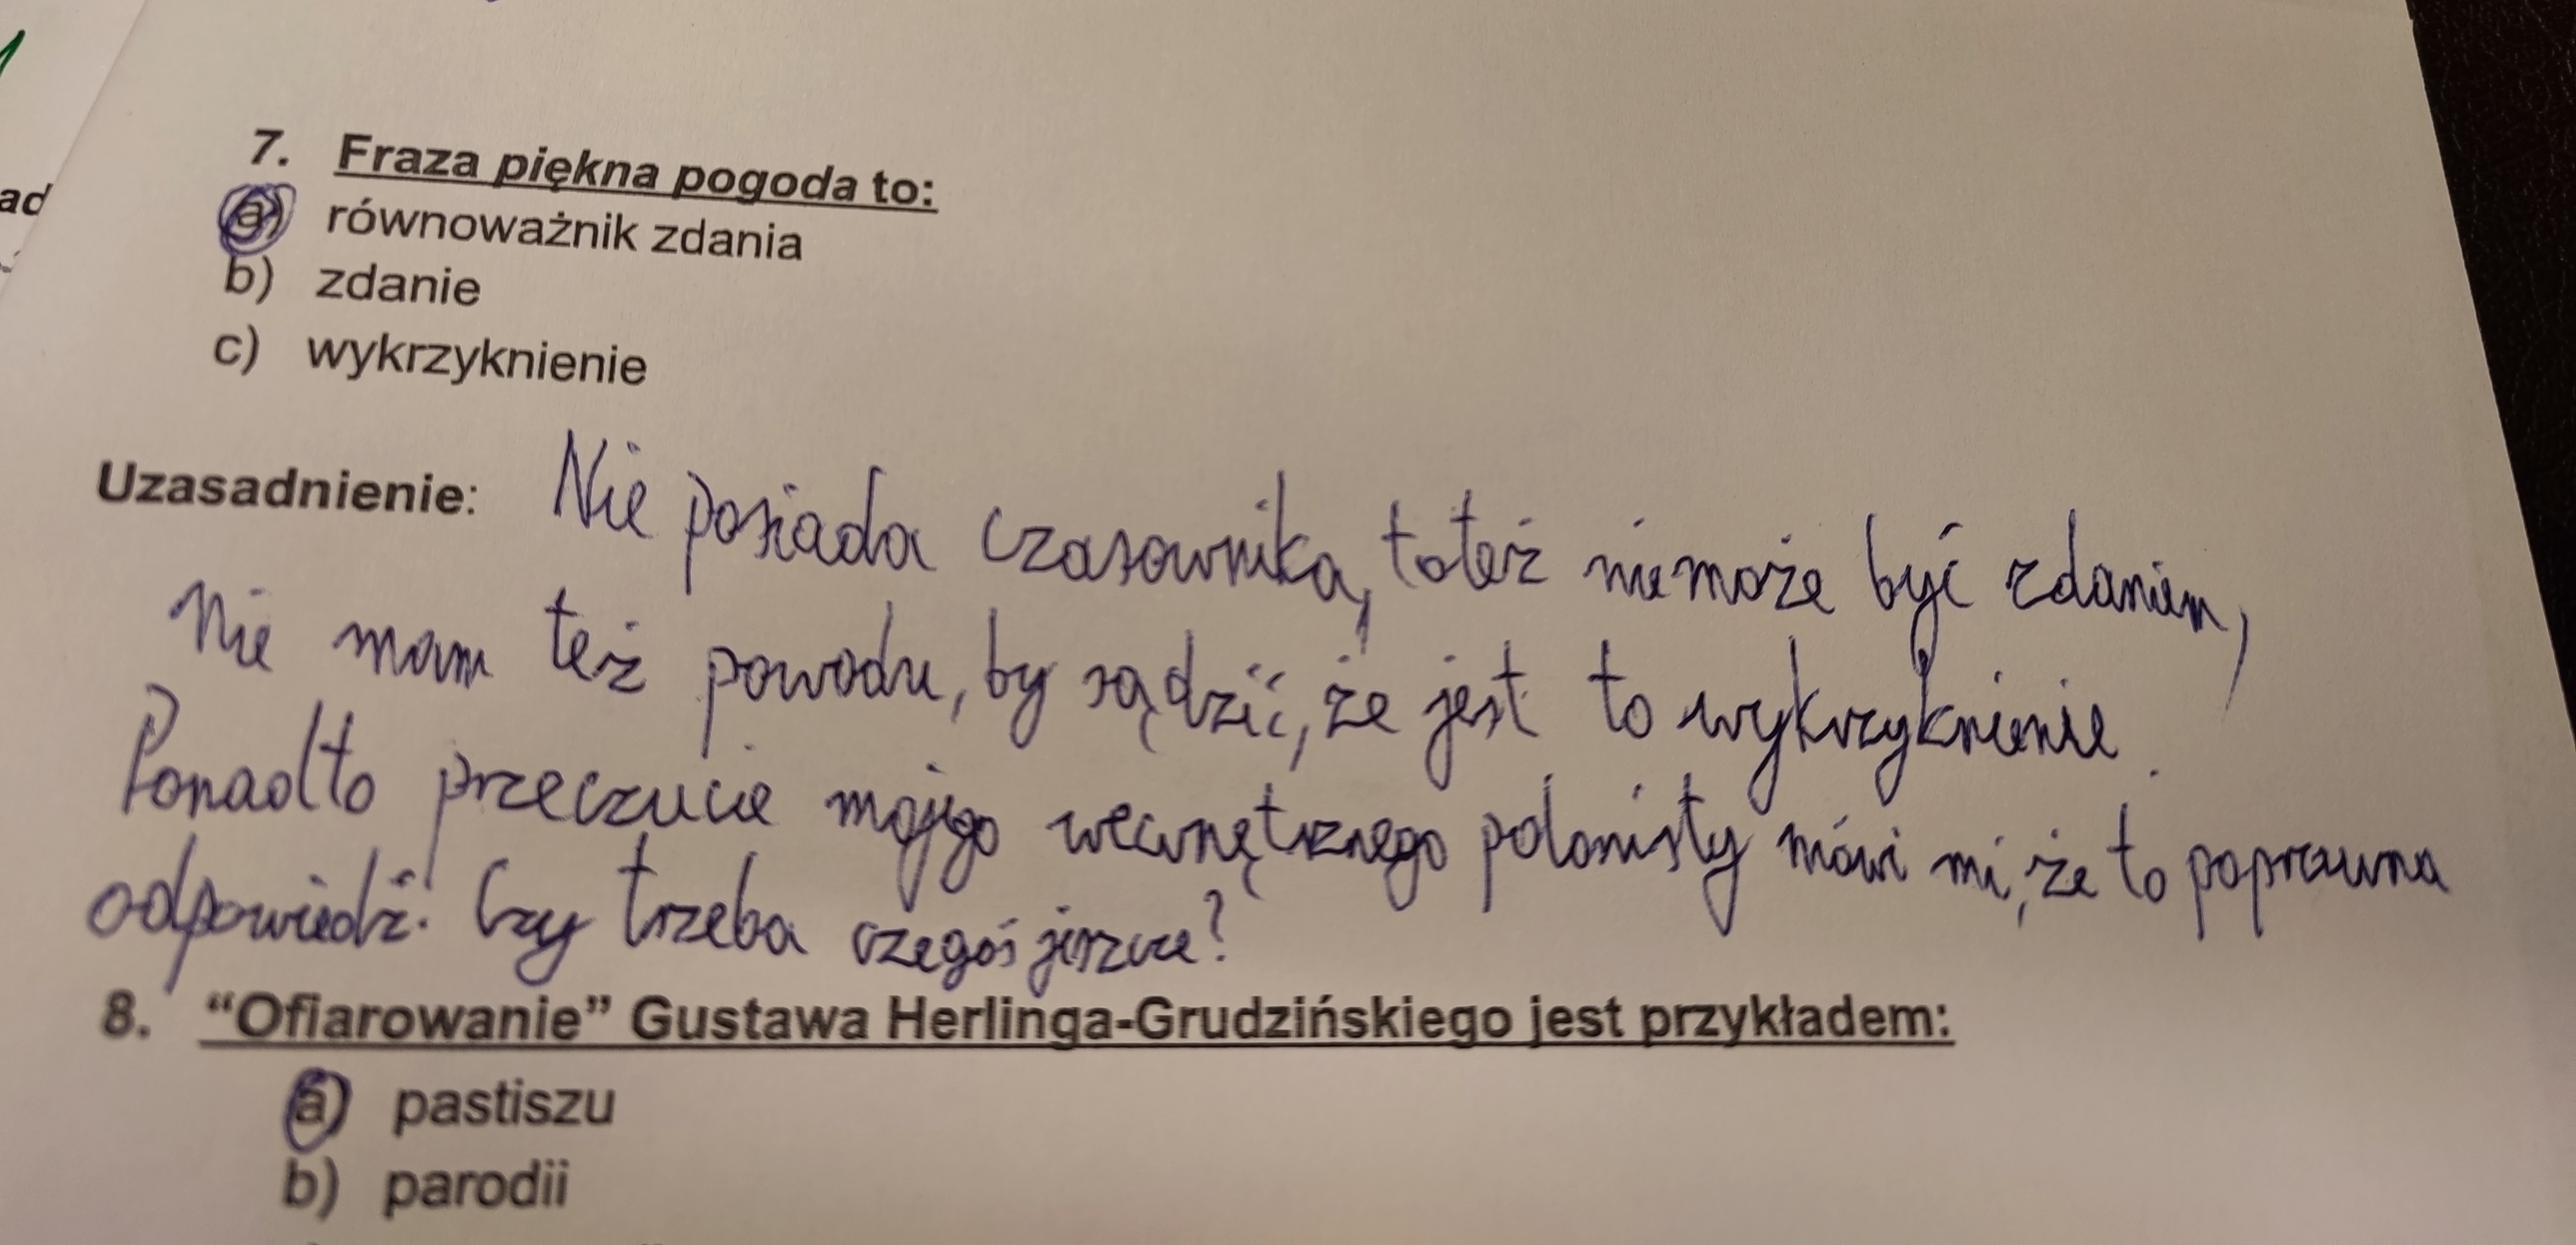 ad
7. Fraza piękna pogoda to:
a) równoważnik zdania
b) zdanie
c) wykrzyknienie
Uzasadnienie: Nie posiada czasownika, toteż nie może być zdaniem,
Nie mam też powodu, by sądzić, że jest to wykrzyknienie.
Ponadto przeczucie mojego wewnętrznego polonisty mówi mi, że to poprawna
odpowiedź. Czy trzeba czegoś jeszcze?
8. “Ofiarowanie” Gustawa Herlinga-Grudzińskiego jest przykładem:
a) pastiszu
b) parodii